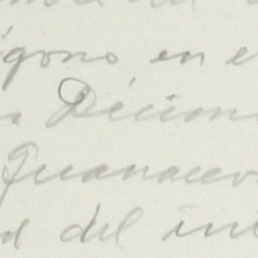 gono en e
Décim
Guanacev
d del int